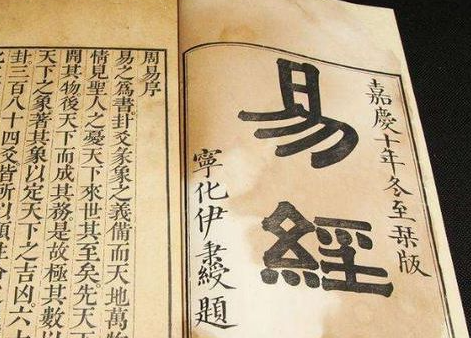 嘉慶十年冬至栞版
易經
寧化伊秉綬題
周易序
易之爲書卦爻彖象之義備而天地萬物
情見聖人之憂天下來世其至矣先天
開其物後天下而成其務是故極其數以
天下之象著其象以定天下之吉凶六十
卦三百八十四爻皆所以順性